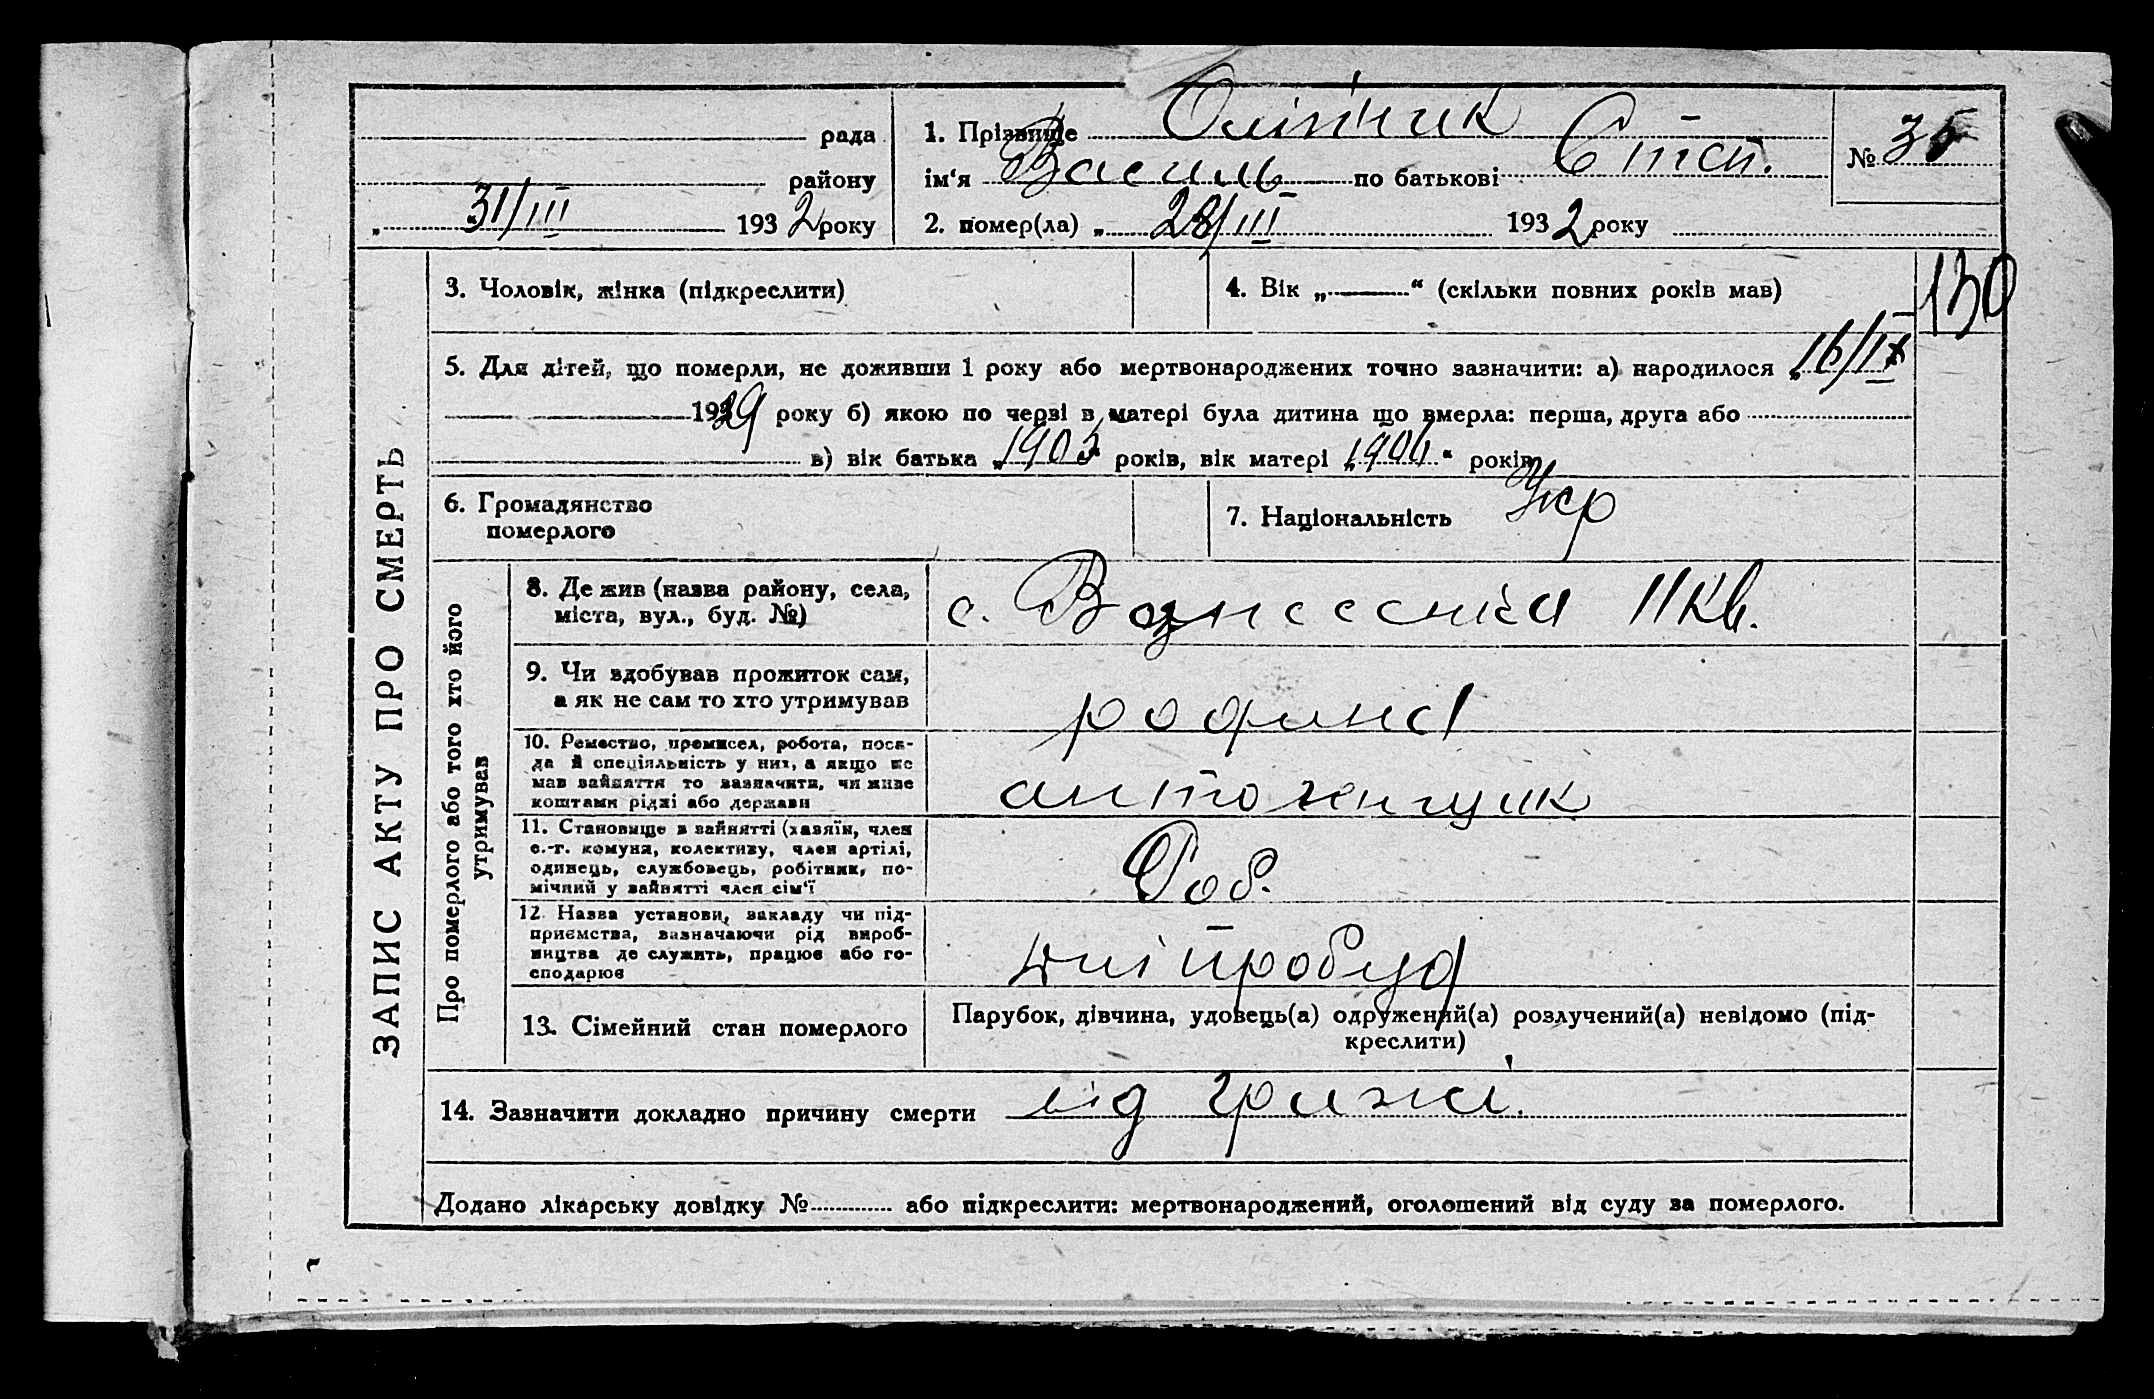 рада
району
„ 31/III 1932 року
1. Прізвище Олійник
ім‘я Василь по батькові Степ.
2. помер(ла) „ 28/III 1932 року
№ 35
130
ЗАПИС АКТУ ПРО СМЕРТЬ
3. Чоловік, жінка (підкреслити)
4. Вік „ “ (скільки повних років мав)
5. Для дітей, що померли, не доживши 1 року або мертвонароджених точно зазначити: а) народилося „ 16/IX
1929 року б) якою по черві в матері була дитина що вмерла: перша, друга або
в) вік батька „1903 років, вік матері „1904“ років
6. Громадянство
померлого
7. Національність Укр
Про померлого або того хто його
утримував
8. Де жив (назва району, села,
міста, вул., буд. №)
с. Вознесенка 11 кв.
9. Чи здобував прожиток сам,
а як не сам то хто утримував
родина
10. Ремество, промисел, робота, поса-
да й спеціяльність у них, а якщо не
мав зайняття то зазначити, чи живе
коштами рідні або держави
11. Становище в зайнятті (хазяїн, член
с.-г. комуни, колективу, член артілі,
одинець, службовець, робітник, по-
мічний у зайнятті член сім‘ї
Роб.
12. Назва установи, закладу чи під-
приємства, зазначаючи рід вироб-
ництва де служить, працює або го-
сподарює
Дніпробуд
13. Сімейний стан померлого
Парубок, дівчина, удовець(а) одружений(а) розлучений(а) невідомо (під-
креслити)
14. Зазначити докладно причину смерти від грижі.
Додано лікарську довідку № або підкреслити: мертвонароджений, оголошений від суду за померлого.